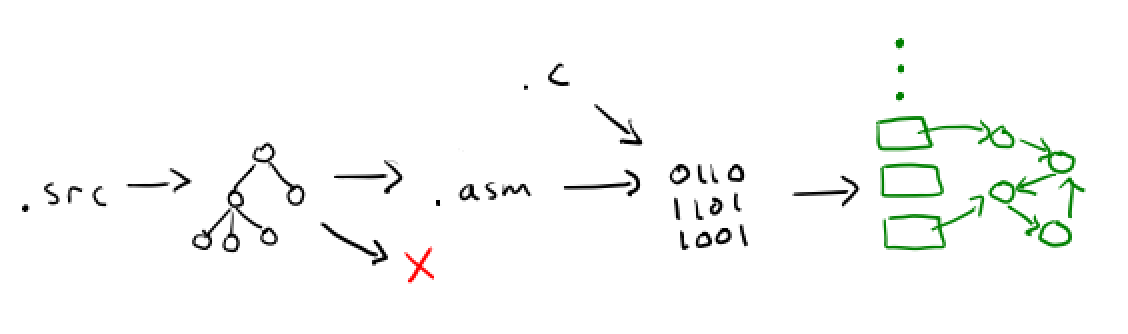 .c
.src
.asm
0110
1101
1001
X